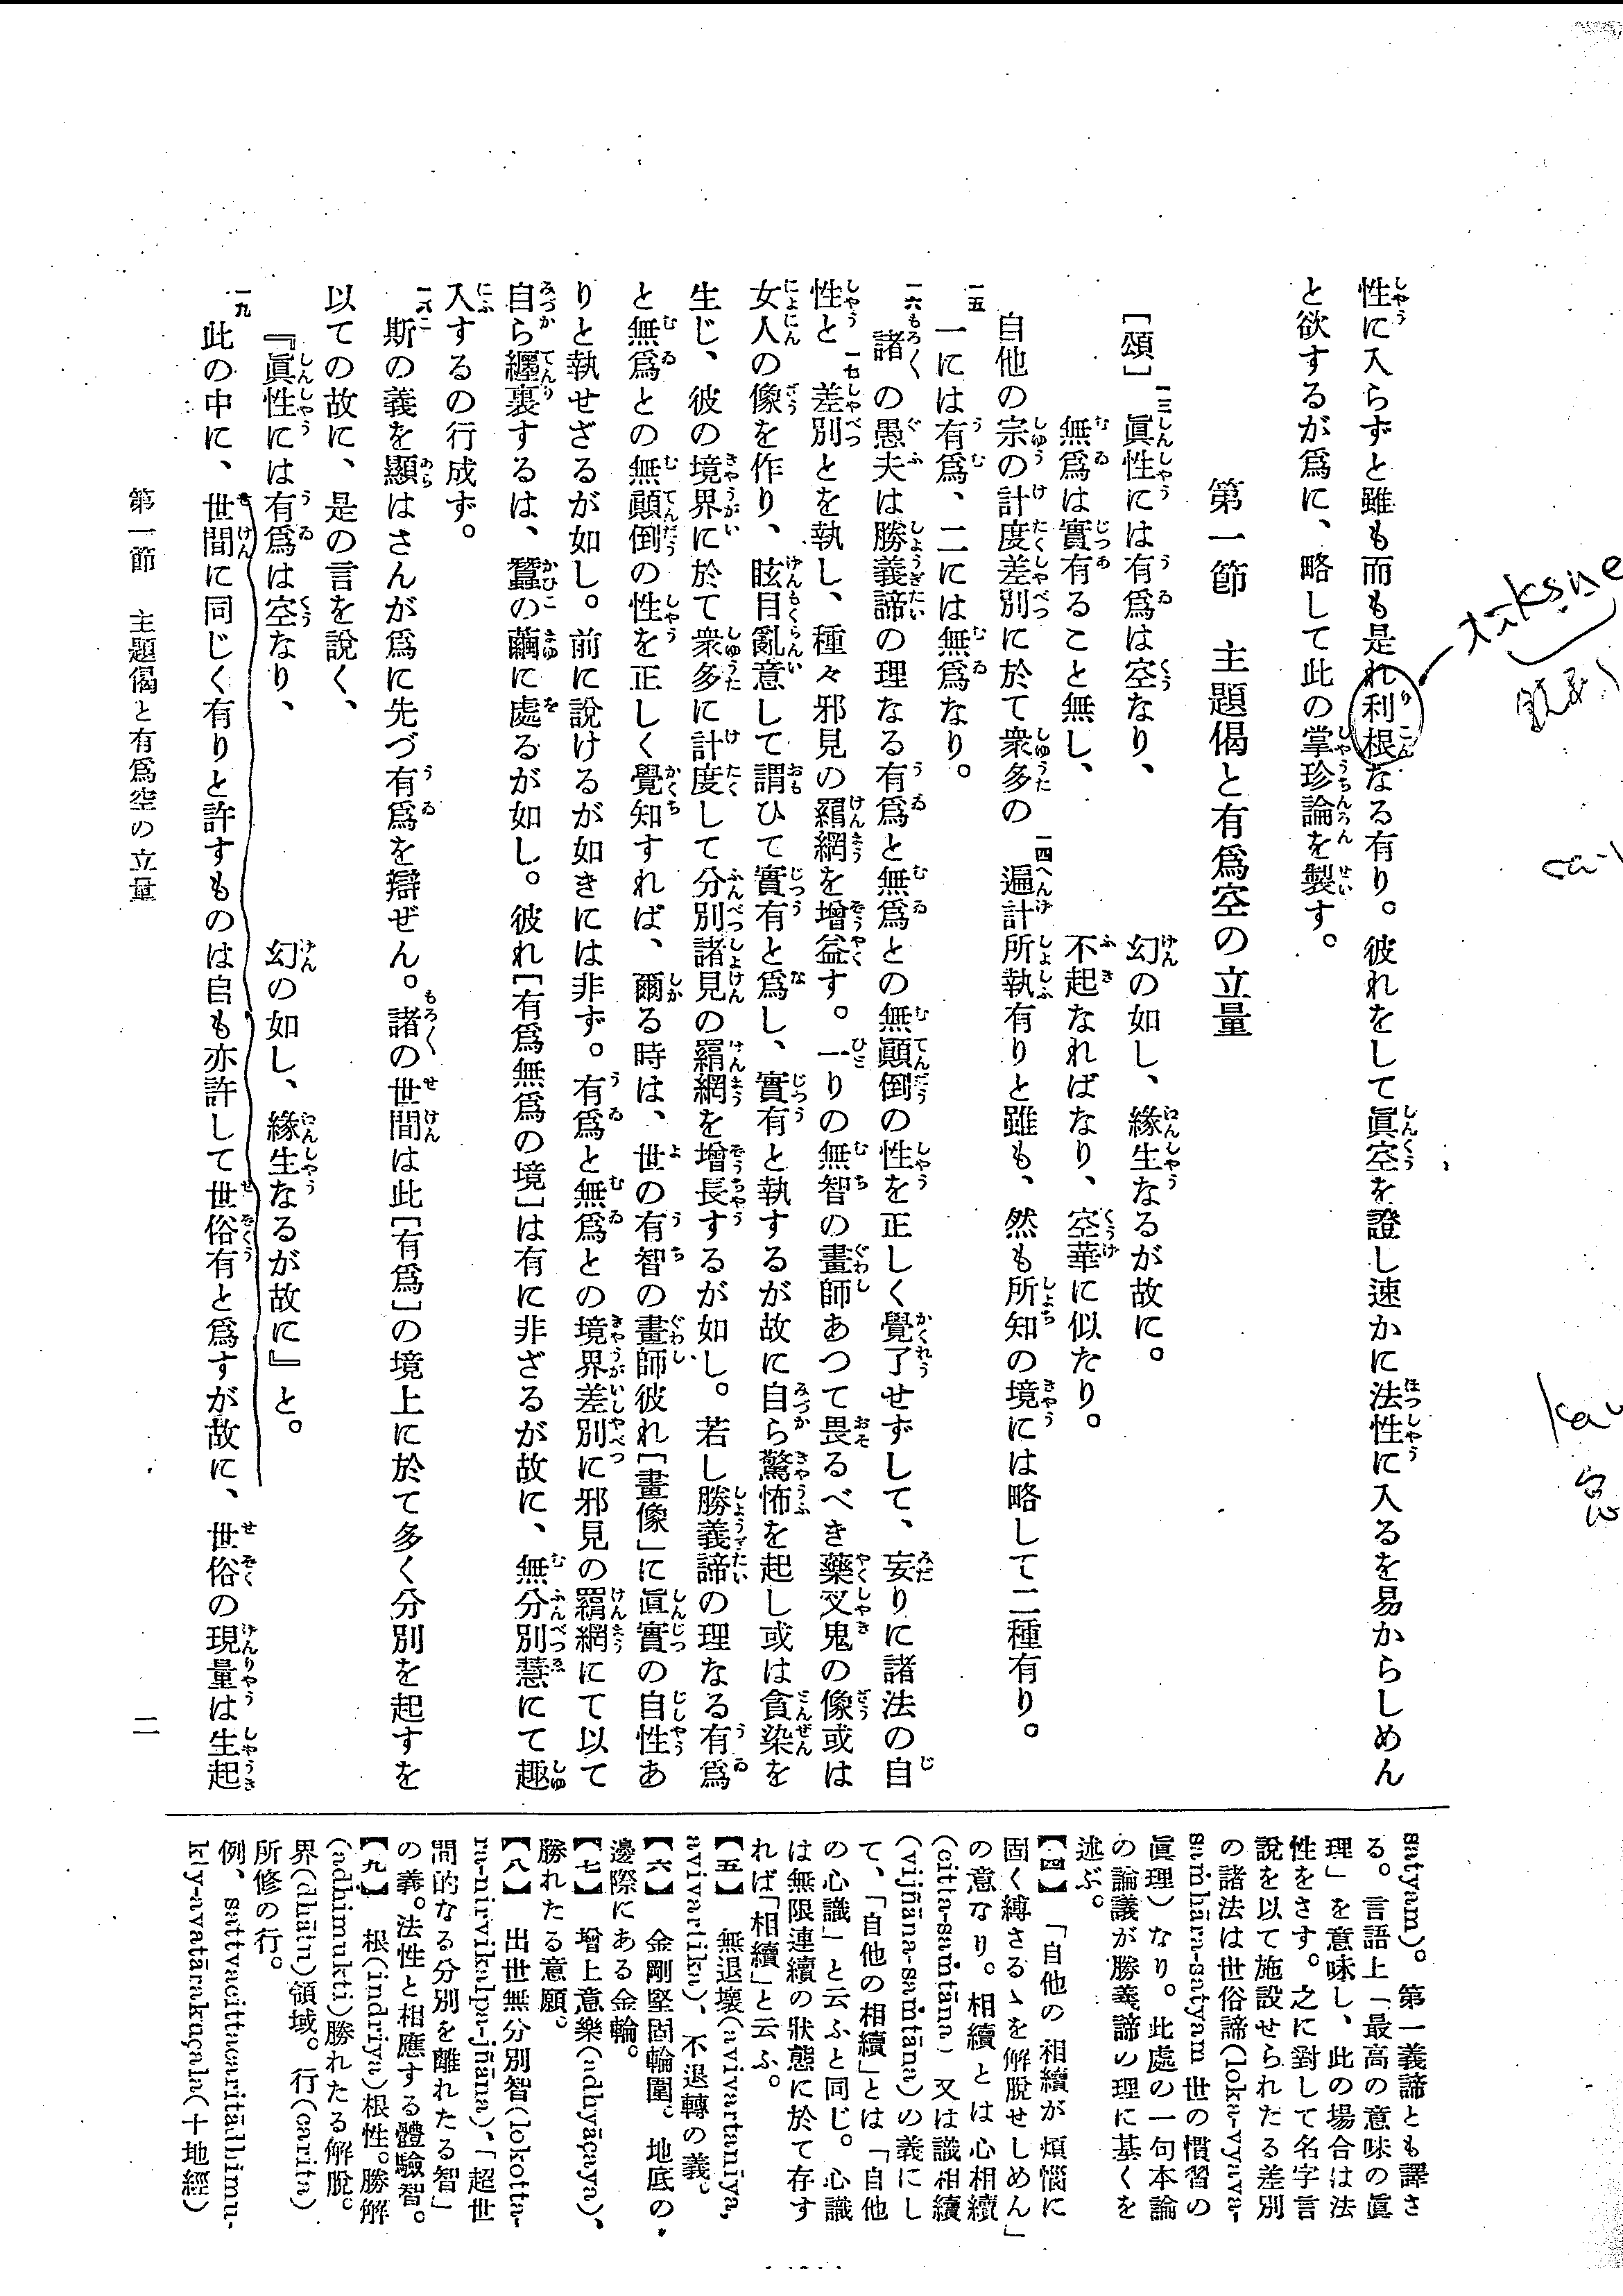 性に入らずと雖も而も是れ利根なる有り。彼れをして眞空を證し速かに法性に入るを易からしめん
と欲するが爲に、略して此の掌珍論を製す。
第一節 主題偈と有爲空の立量
[頌] 一三 眞性には有爲は空なり、 幻の如し、緣生なるが故に。
無爲は實有ること無し、 不起なればなり、空華に似たり。
自他の宗の計度差別に於て衆多の 一四 遍計所執有りと雖も、然も所知の境には略して二種有り。
一五 一には有爲、二には無爲なり。
一六 諸の愚夫は勝義諦の理なる有爲と無爲との無顚倒の性を正しく覺了せずして、妄りに諸法の自
性と 一七 差別とを執し、種々邪見の羂網を增益す。一りの無智の畫師あつて畏るべき藥叉鬼の像或は
女人の像を作り、眩目亂意して謂ひて實有と爲し、實有と執するが故に自ら驚怖を起し或は貪染を
生じ、彼の境界に於て衆多に計度して分別諸見の羂網を增長するが如し。若し勝義諦の理なる有爲
と無爲との無顚倒の性を正しく覺知すれば、爾る時は、世の有智の畫師彼れ[畫像」に眞實の自性あ
りと執せざるが如し。前に說けるが如きには非ず。有爲と無爲との境界差別に邪見の羂網にて以て
自ら纒裏するは、蠶の繭に處るが如し。彼れ[有爲無爲の境]は有に非ざるが故に、無分別慧にて趣
入するの行成ず。
一八 斯の義を顯はさんが爲に先づ有爲を辯ぜん。諸の世間は此[有爲]の境上に於て多く分別を起すを
以ての故に、是の言を說く、
『眞性には有爲は空なり、 幻の如し、緣生なるが故に』と。
一九 此の中に、世間に同じく有りと許すものは自も亦許して世俗有と爲すが故に、世俗の現量は生起
第一節 主題偈と有爲空の立量
二
satyam)。第一義諦とも譯さ
る。言語上「最高の意味の眞
理」を意味し、此の場合は法
性をさす。之に對して名字言
說を以て施設せられたる差別
の諸法は世俗諦(loka-vyava-
saṁhāra-satyam 世の慣習の
眞理)なり。此處の一句本論
の論議が勝義諦の理に基くを
述ぶ。
【四】 「自他の相續が煩惱に
固く縛さるゝを解脫せしめん」
の意なり。相續とは心相續
(citta-saṁtāna) 又は識相續
(vijñāna-saṁtāna)の義にし
て、「自他の相續」とは「自他
の心識」と云ふと同じ。心識
は無限連續の狀態に於て存す
れば「相續」と云ふ。
【五】 無退壞(avivartanīya,
avivartika)、不退轉の義。
【六】 金剛堅固輪圍。地底の
邊際にある金輪。
【七】 增上意樂(adhyāçaya)、
勝れたる意願。
【八】 出世無分別智(lokotta-
ra-nirvikalpa-jñāna)、「超世
間的なる分別を離れたる智」
の義。法性と相應する體驗智。
【九】 根(indriya)根性。勝解
(adhimukti)勝れたる解脫。
界(dhātu)領域。行(carita)
所修の行。
例、sattvacittacaritādhimu-
kty-avatārakuçala(十地經)
tīkṣṇe